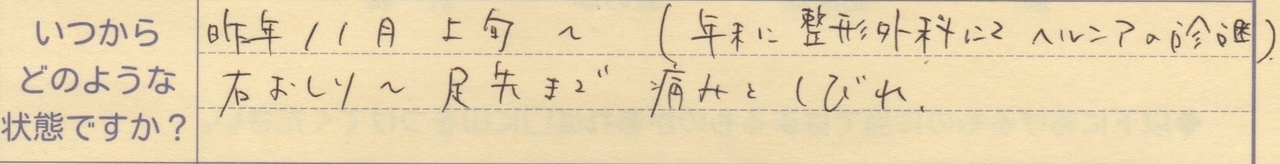 いつから
どのような
状態ですか?
昨年11月 上旬 ~ (年末に 整形外科にて ヘルニアの診断)
右おしり~ 足先まで 痛みと しびれ.